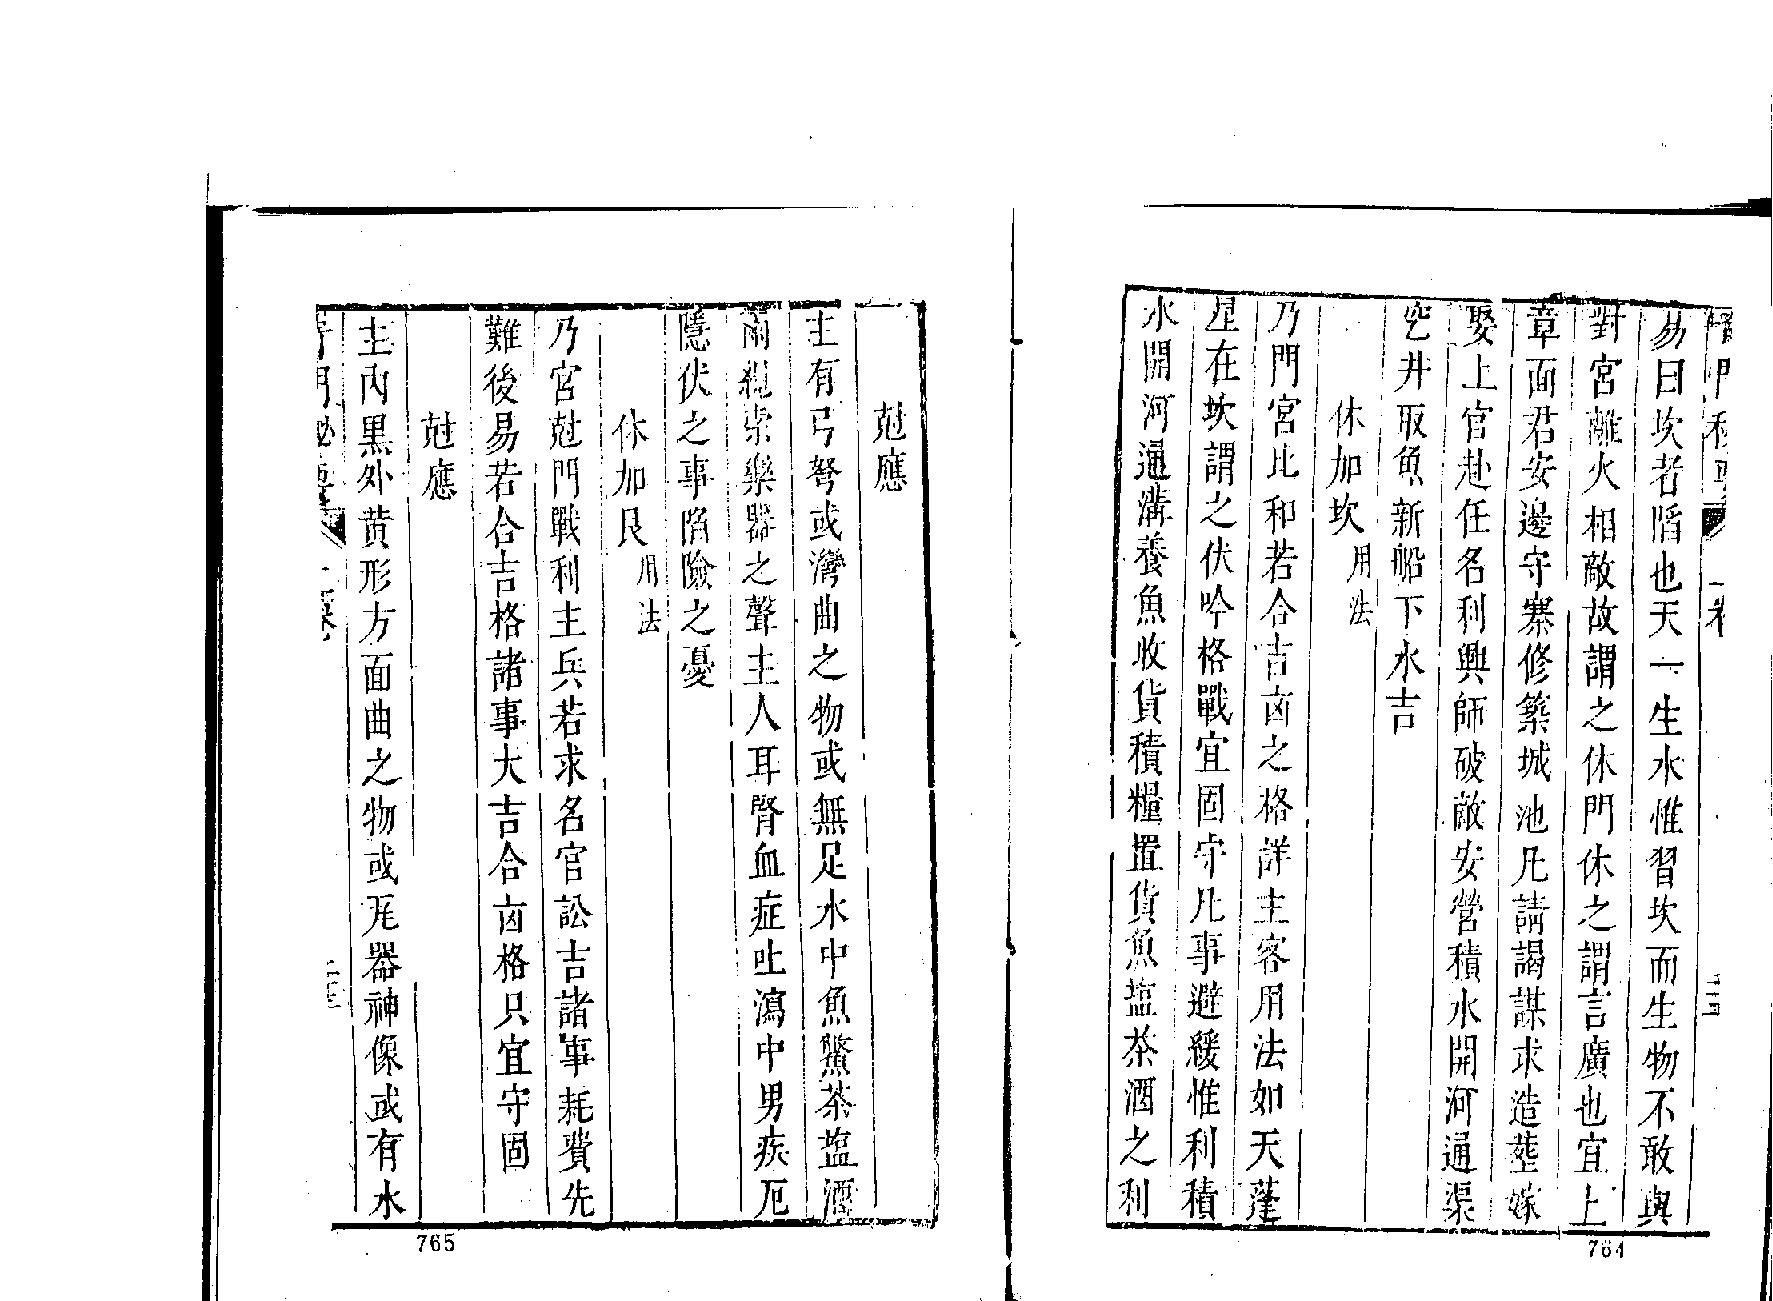 易曰坎者陷也天一生水惟習坎而生物不敢與
對宮離火相敵故謂之休門休之謂言廣也宜上
章面君安邊守寨修築城池凡請謁謀求造塟嫁
娶上官赴任名利興師破敵安營積水開河通渠
穵井取魚新船下水吉
休加坎用法
乃門宮比和若合吉凶之格詳主客用法如天蓬
星在坎謂之伏吟格戰宜固守凡事避緩惟利積
水開河通溝養魚收貨積糧置貨魚塩茶酒之利
764
尅應
主有弓弩或灣曲之物或無足水中魚鱉茶塩酒
索樂器之聲主人耳腎血症吐瀉中男疾厄
隱伏之事陷險之憂
休加艮用法
乃宮尅門戰利主兵若求名官訟吉諸事耗費先
難後易若合吉格諸事大吉合凶格只宜守固
尅應
主內黑外黃形方面曲之物或瓦器神像或有水
765